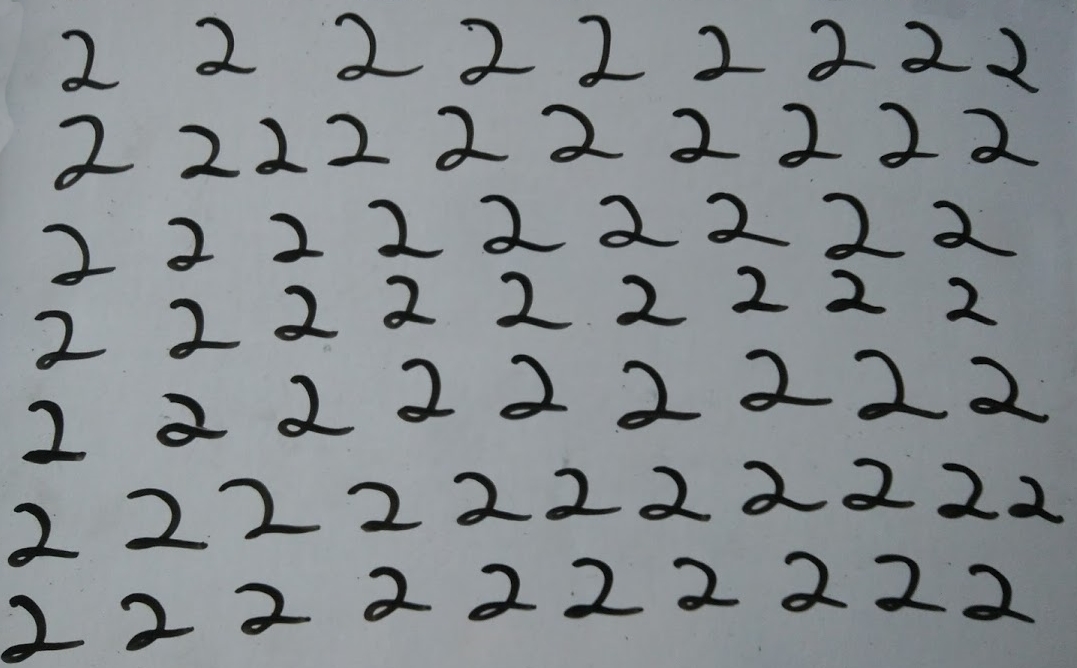 2 2 2 2 2 2 2 2 2
2 2 2 2 2 2 2 2 2 2
2 2 2 2 2 2 2 2 2
2 2 2 2 2 2 2 2 2
2 2 2 2 2 2 2 2 2
2 2 2 2 2 2 2 2 2 2 2
2 2 2 2 2 2 2 2 2 2